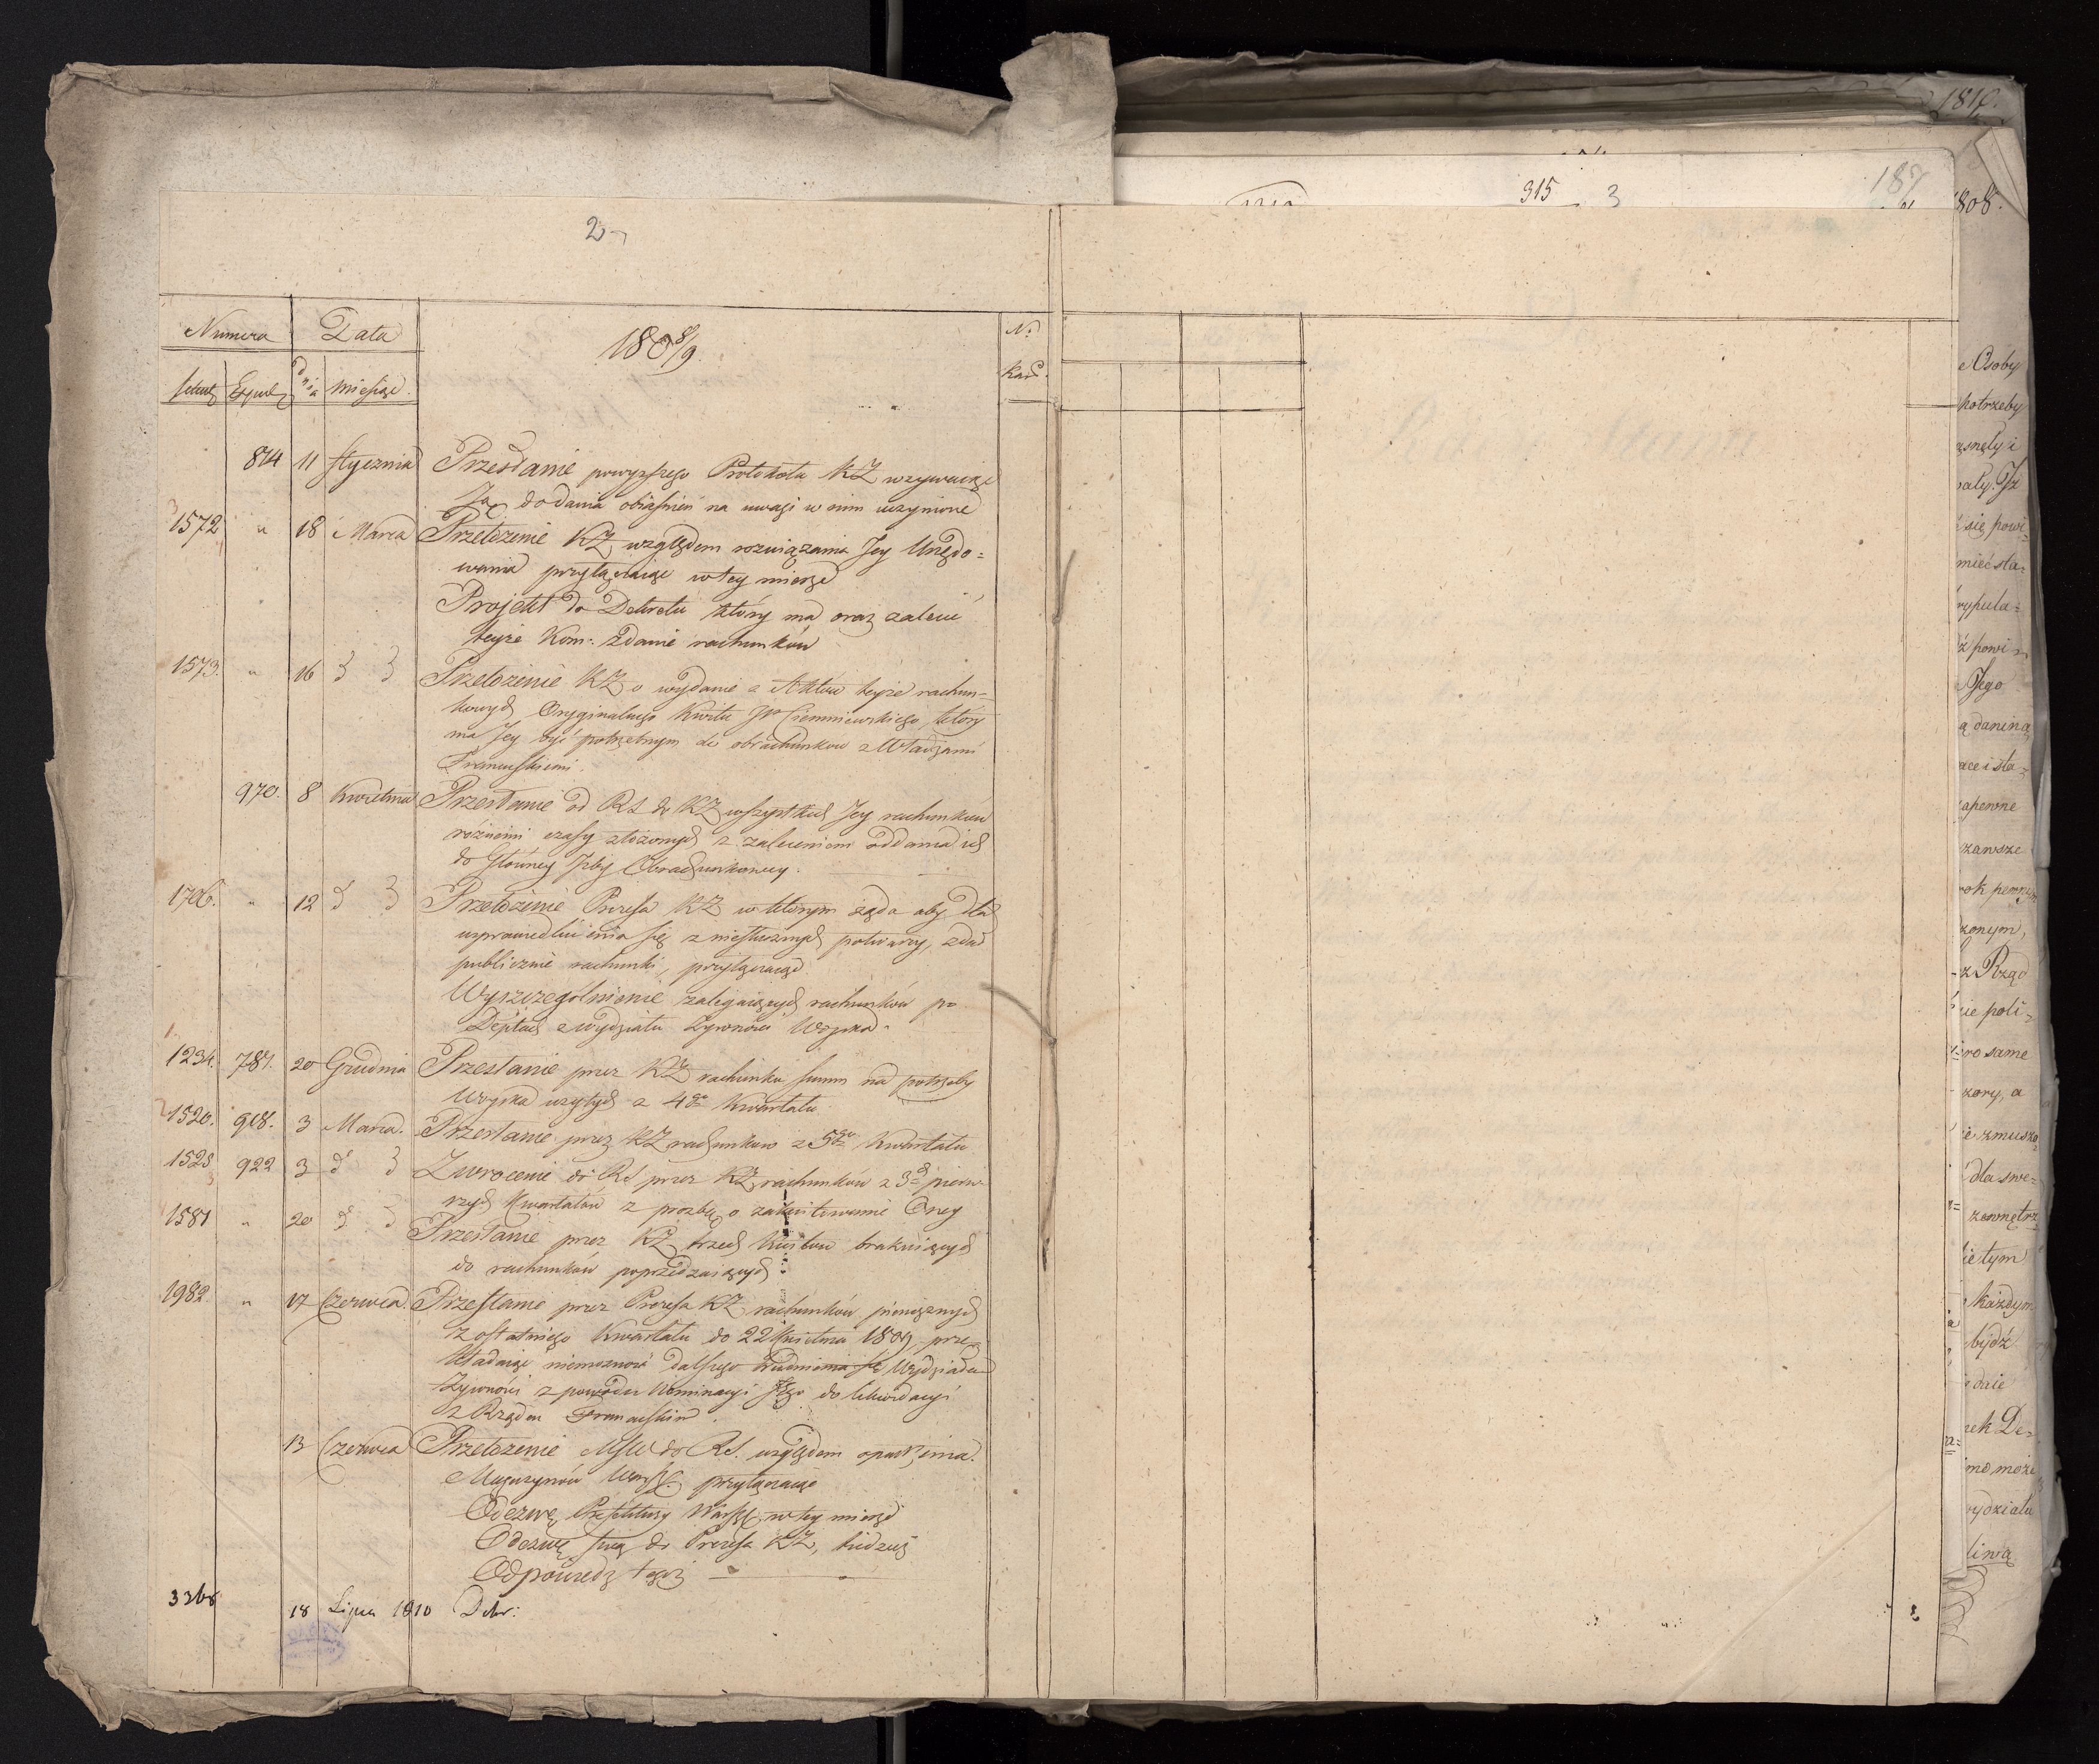 2
Numera Data 1808/9. No
Expед dnia miesiąc. Kart.
814 11 stycznia Przesłanie powyższego Protokołu KŻ wzywaiąc
Ją do dania obiaśnień na uwagi w nim uczynione
1572 " 18 Marca Przełożenie KŻ względem rozwiązania Jey Urzędo=
wania przyłączaiąc w tey mierze
Projekt do Dekretu który ma oraz zalecić
teyże Kom: zdanie rachunków
1573. " 16 Przełożenie KŻ o wydanie z Aktów teyże rachun=
kowych Oryginalnego Kwitu JP Ciemniewskiego, który
ma Jey być potrzebnym do obrachunków z Władzami
Francuskiemi.
970. 8 Kwietnia Przesłanie od RS do KŻ wszystkich Jey rachunków
różnemi czasy złożonych z zaleceniem oddania ich
do Główney Izby Obrachunkowey.
1706. " 12 d Przełożenie Prezesa KŻ w którym żąda aby dla
usprawiedliwienia się z niesłusznych potwarzy, zdał
publicznie rachunki, przyłączaiąc
Wyszczególnienie zalegaiących rachunków po
Deptach z wydziału Żywności Woyska.
1234. 781. 20 Grudnia Przesłanie przez KŻ rachunku summ na potrzeby
Woyska użytych z 4go Kwartału
1520. 908. 3 Marca. Przesłanie przez KŻ rachunków z 5go Kwartału
1528 922 3 d Zwrócenie do RS przez KŻ rachunków z 3ch pierw=
szych Kwartałów z prośbą o zakwitowanie Oney
1581 " 20 d Przesłanie przez KŻ trzech Kwitów brakuiących
do rachunków poprzedzaiących
1982 " 17 Czerwca. Przesłanie przez Prezesa KŻ rachunków pieniężnych
z ostatniego Kwartału do 22 Kwietnia 1809, prze=
kładaiąc niemożność dalszego trudnienia się Wydziałem
Żywności z powodu Nominacyi Jego do likwidacyi
z Rządem Francuskim.
13 Czerwca Przełożenie MSW do RS. względem opatrzenia
Magazynów Warsz. przyłączaiąc
Odezwę Prefektury Warszs: w tey mierze
Odezwę swą do Prezesa KŻ, tudzież
Odpowiedz tegoż
18 Lipca 1810 Dekr:
315 3
187
1808.
e Osoby
potrzeby
się powi=
mieć sta=
ź powi=
Jego
ą daniną,
zapewne
zawsze
rok pewnym
z Rząd
ie poli=
ro same
zory, a
ie zmusza=
dla swe=
zewnętrz
ie tym
każdym
bydź
daie
mo może
ydziału